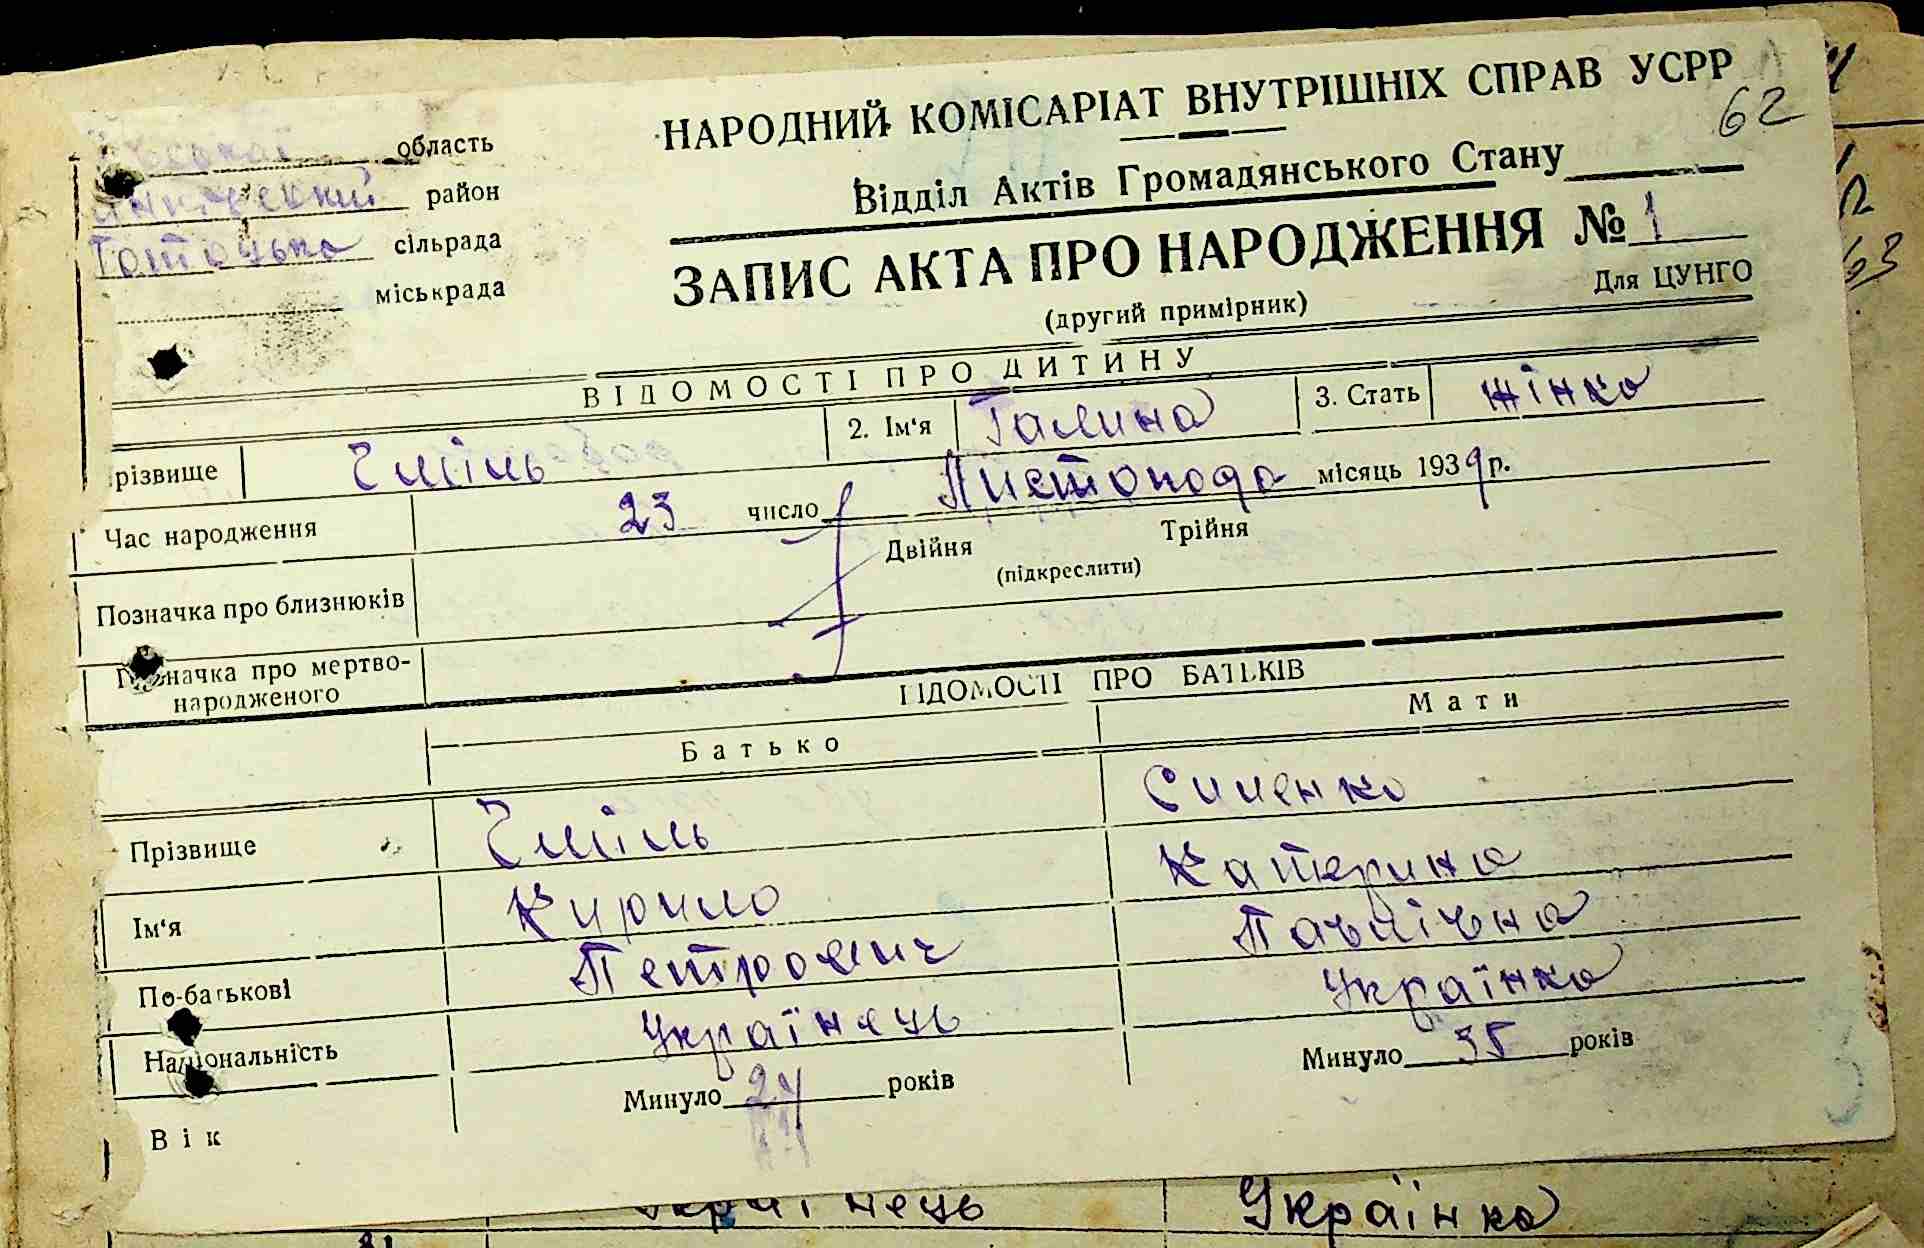 НАРОДНИЙ КОМІСАРІАТ ВНУТРІШНІХ СПРАВ УСРР
62
область
район
сільрада
міськрада
Відділ Актів Громадянського Стану
ЗАПИС АКТА ПРО НАРОДЖЕННЯ № 1
(другий примірник)
Для ЦУНГО
ВІДОМОСТІ ПРО ДИТИНУ
різвище Чміль 2. Ім'я Галина 3. Стать жінка
Час народження 23 число Листопада місяць 1939 р.
Позначка про близнюків Двійня Трійня
(підкреслити)
Позначка про мертво-
народженого
ВІДОМОСТІ ПРО БАТЬКІВ
Батько Мати
Прізвище Чміль Сименко
Ім'я Кирило Катерина
По-батькові Петрович Павлівна
Національність Українець Українка
Вік Минуло 24 років Минуло 35 років
Українець Українка
63